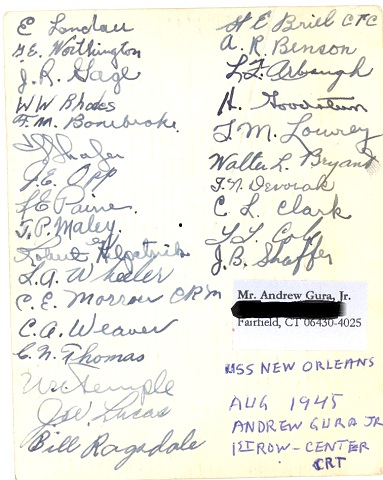 E Landau
G.E. Worthington
J.R. Gage
W W Rhodes
F.M. Bonebrake
Shafer
J.E. Opp
Paine
J.P. Maley
Robert Kilpatrick
L.A. Wheeler
C.E. Morrow CRM
C.A. Weaver
C.N. Thomas
Wm Temple
J.W. Lucas
Bill Ragsdale
H E Brill CFC
A.R. Benson
L.F. Arbaugh
H. Goodstein
T.M. Lowrey
Walter L. Bryant
F.N. Dvorak
C L Clark
Cobb
J.B. Shaffer
Mr. Andrew Gura, Jr.
Fairfield, CT 06430-4025
USS NEW ORLEANS
AUG 1945
ANDREW GURA JR
1ST ROW-CENTER
CRT